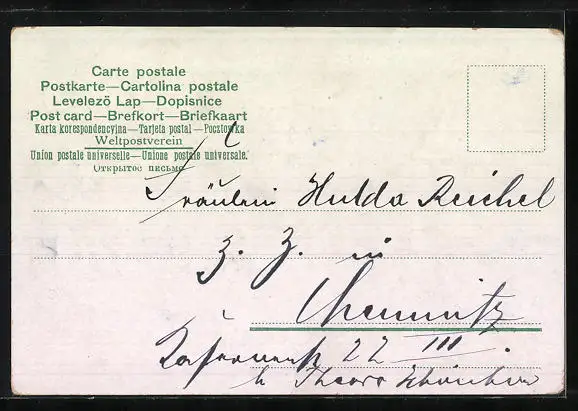 Carte postale
Postkarte—Cartolina postale
Levelező Lap—Dopisnice
Post card—Brefkort—Briefkaart
Karta korespondencyjna—Tarjeta postal—Pocztówka
Weltpostverein
Union postale universelle—Unione postale universale.
Открытое письмо
Fräulein Hulda Reichel
z. Z. in
Chemnitz
22 III.
b.